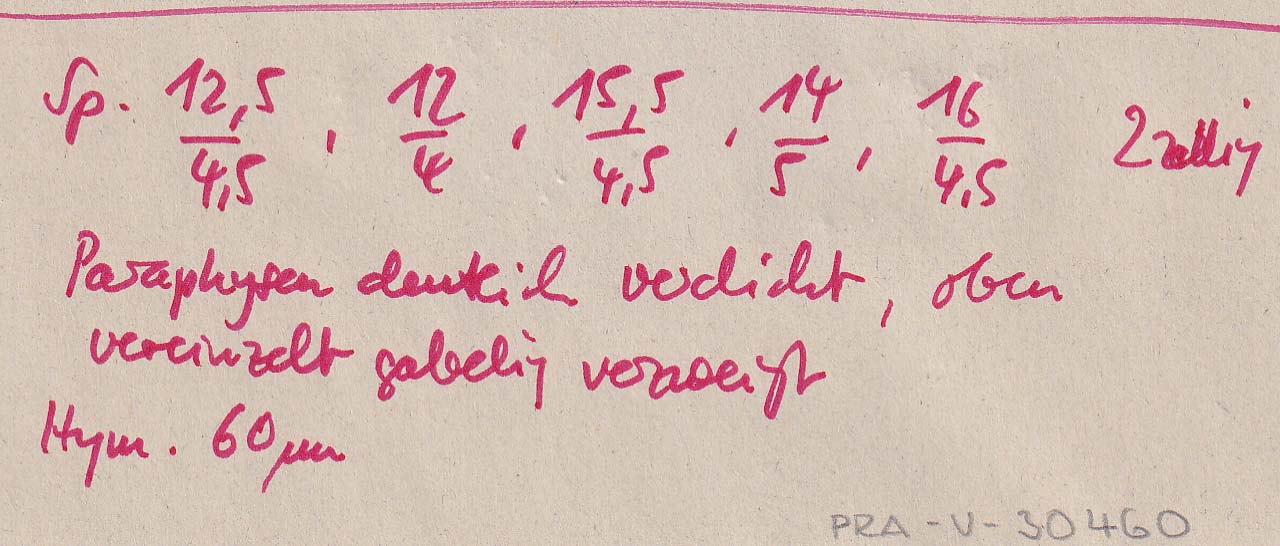 Sp. 12,5/4,5 , 12/4 , 15,5/4,5 , 14/5 , 16/4,5 2zellig
Paraphysen deutlich verdickt, oben
vereinzelt gabelig verzweigt
Hym. 60 µm
PRA-V-30460